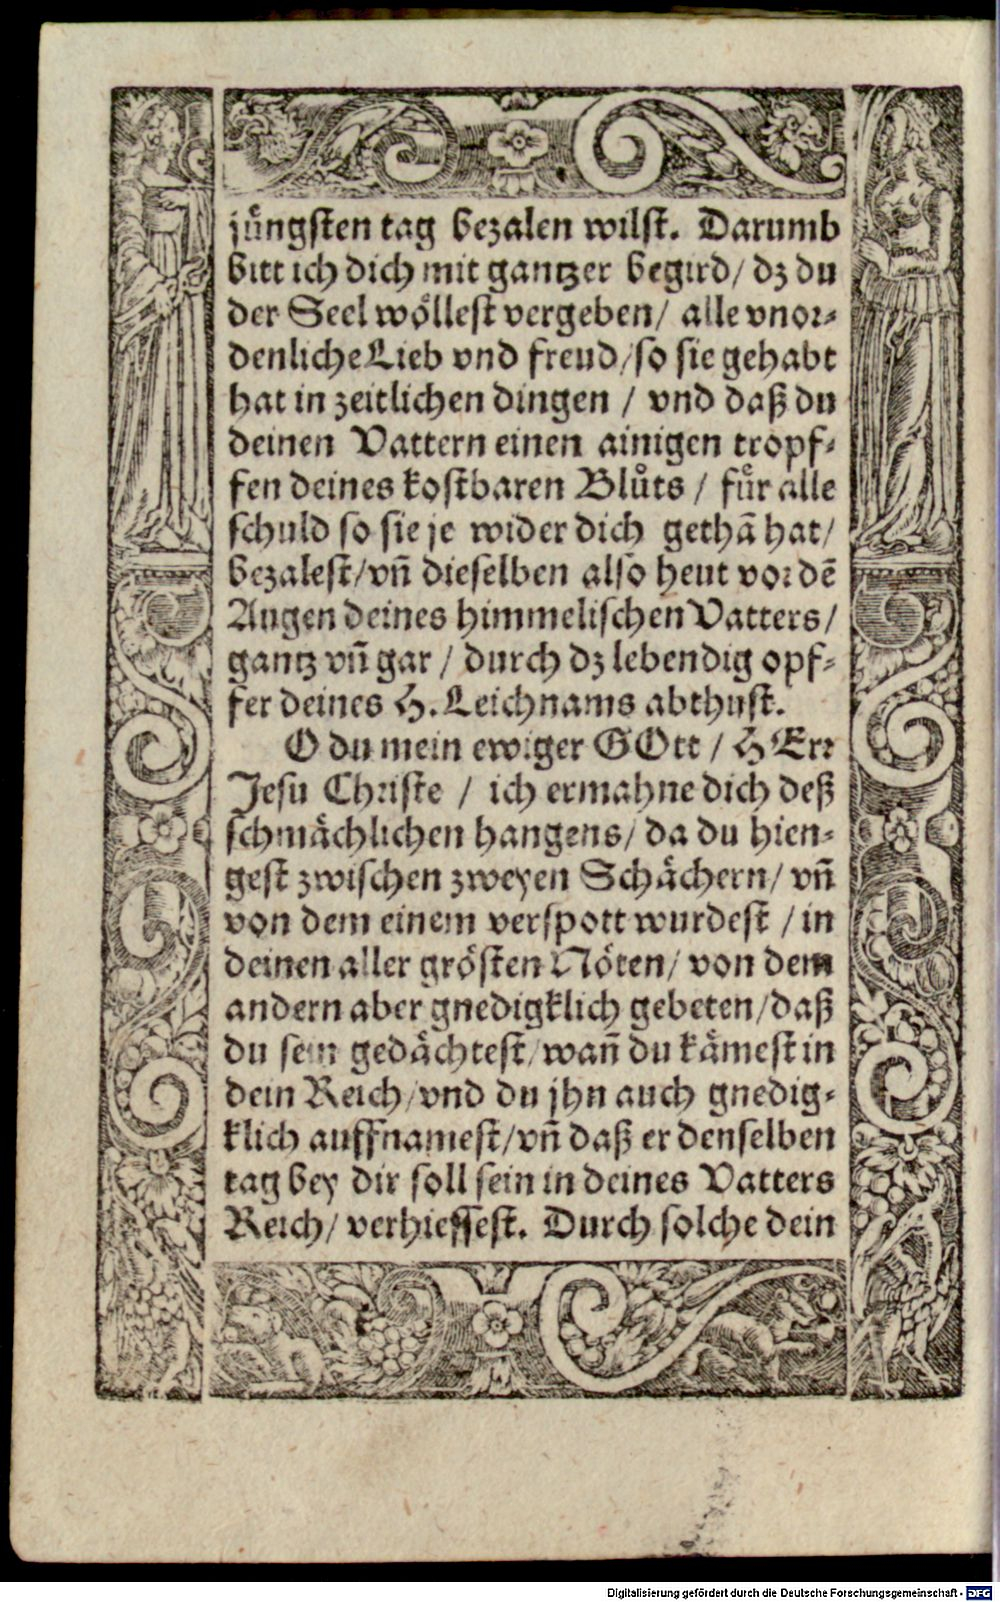 jüngsten tag bezalen wilst. Darumb
bitt ich dich mit gantzer begird/ dz du
der Seel wöllest vergeben/ alle vnor-
denliche Lieb vnd freud/so sie gehabt
hat in zeitlichen dingen / vnd daß du
deinen Vattern einen ainigen tropf-
fen deines kostbaren Blůts / für alle
schuld so sie je wider dich gethã hat/
bezalest/vñ dieselben also heut vor dẽ
Augen deines himmelischen Vatters/
gantz vñ gar / durch dz lebendig opf-
fer deines H. Leichnams abthust.
O du mein ewiger GOtt / HErr
Jesu Christe / ich ermahne dich deß
schmächlichen hangens/ da du hien-
gest zwischen zweyen Schächern/ vñ
von dem einem verspott wurdest / in
deinen aller grösten Nöten/ von dem
andern aber gnedigklich gebeten/daß
du sein gedächtest/wañ du kämest in
dein Reich/vnd du jhn auch gnedig-
klich auffnamest/vñ daß er denselben
tag bey dir soll sein in deines Vatters
Reich/ verhiessest. Durch solche dein
Digitalisierung gefördert durch die Deutsche Forschungsgemeinschaft - DFG